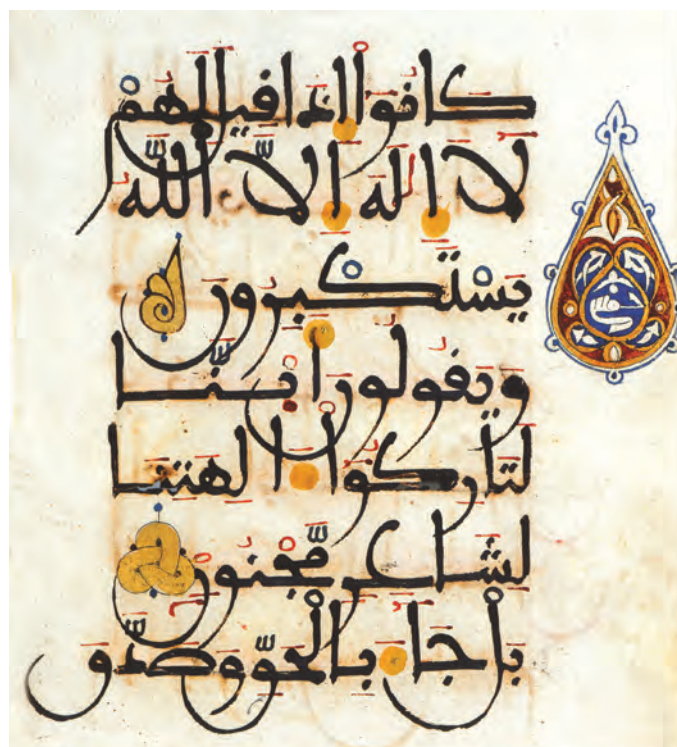 كَانُوا إِذَا قِيلَ لَهُمْ
لَا إِلَهَ إِلَّا اللَّهُ
يَسْتَكْبِرُونَ
وَيَقُولُونَ أَئِنَّا
لَتَارِكُوا ءَالِهَتِنَا
لِشَاعِرٍ مَّجْنُونٍ
بَلْ جَاءَ بِالْحَقِّ وَصَدَّقَ